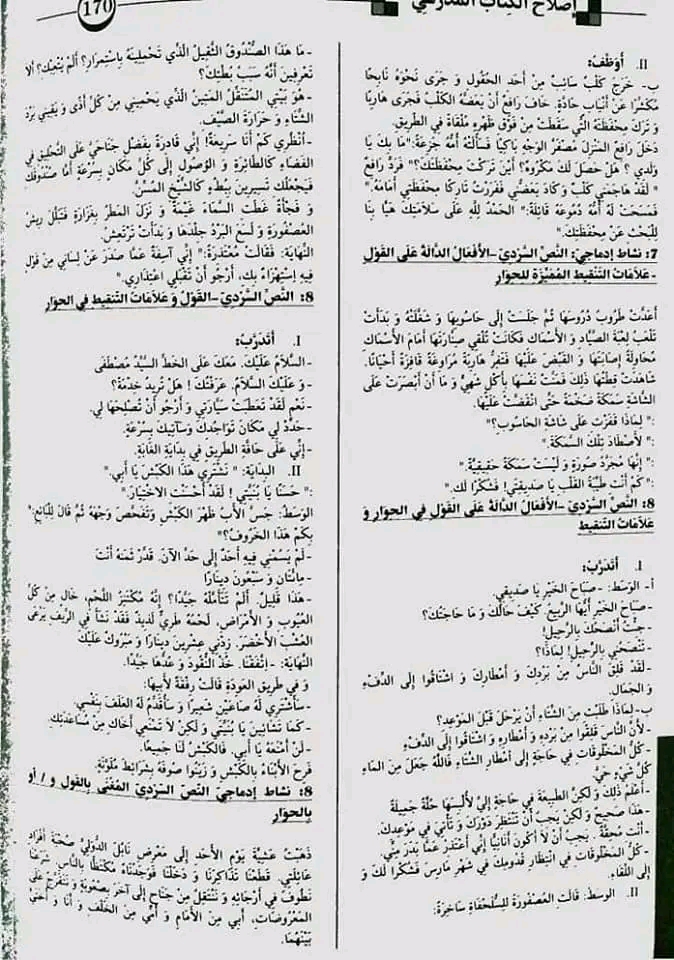 170
إصلاح الكتاب المدرسي
II. أُوَظِّفُ:
ب- خَرَجَ كَلْبٌ سَائِبٌ مِنْ أَحَدِ الحُقُولِ وَ جَرَى نَحْوَهُ نَابِحًا
مُكَشِّرًا عَنْ أَنْيَابٍ حَادَّةٍ. خَافَ رَافِعٌ أَنْ يَعَضَّهُ الكَلْبُ فَجَرَى هَارِبًا
وَ تَرَكَ مِحْفَظَتَهُ الَّتِي سَقَطَتْ مِنْ فَوْقِ ظَهْرِهِ مُلْقَاةً فِي الطَّرِيقِ.
دَخَلَ رَافِعٌ المَنْزِلَ مُصْفَرَّ الوَجْهِ بَاكِيًا فَسَأَلَتْهُ أُمُّهُ جَزِعَةً:"مَا بِكَ يَا
وَلَدِي ؟ هَلْ حَصَلَ لَكَ مَكْرُوهٌ؟ أَيْنَ تَرَكْتَ مِحْفَظَتَكَ؟" فَرَدَّ رَافِعٌ
" لَقَدْ هَاجَمَنِي كَلْبٌ وَ كَادَ يَعَضُّنِي فَفَرَرْتُ تَارِكًا مِحْفَظَتِي أَمَامَهُ."
فَمَسَحَتْ لَهُ أُمُّهُ دُمُوعَهُ قَائِلَةً:" الحَمْدُ لِلَّهِ عَلَى سَلَامَتِكَ هَيَّا بِنَا
لِلْبَحْثِ عَنْ مِحْفَظَتِكَ."
7: نشاط إدماجي: النّص السّردي -الأفعال الدّالة على القول
-علامات التنقيط المميّزة للحوار
أَعَدَّتْ طَرُوبُ دُرُوسَهَا ثُمَّ جَلَسَتْ إِلَى حَاسُوبِهَا وَ شَغَّلَتْهُ وَ بَدَأَتْ
تَلْعَبُ لِعْبَةَ الصَّيَّادِ وَ الأَسْمَاكِ فَكَانَتْ تُلْقِي صِنَّارَتَهَا أَمَامَ الأَسْمَاكِ
مُحَاوِلَةً إِصَابَتَهَا وَ القَبْضَ عَلَيْهَا فَتَفِرُّ هَارِبَةً مُرَاوِغَةً قَافِزَةً أَحْيَانًا.
شَاهَدَتْ قِطَّتُهَا ذَلِكَ فَمَنَّتْ نَفْسَهَا بِأَكْلٍ شَهِيٍّ وَ مَا أَنْ أَبْصَرَتْ عَلَى
الشَّاشَةِ سَمَكَةً ضَخْمَةً حَتَّى انْقَضَّتْ عَلَيْهَا.
:" لِمَاذَا قَفَزْتِ عَلَى شَاشَةِ الحَاسُوبِ؟"
:" لِأَصْطَادَ تِلْكَ السَّمَكَةَ."
:" إِنَّهَا مُجَرَّدُ صُورَةٍ وَ لَيْسَتْ سَمَكَةً حَقِيقِيَّةً."
:" كَمْ أَنْتِ طَيِّبَةُ القَلْبِ يَا صَدِيقَتِي! فَشُكْرًا لَكِ."
8: النّصّ السّرديّ -الأفعال الدّالة على القول في الحوار و
علامات التنقيط
I. أَتَدَرَّبُ:
أ- الوَسَطُ: - صَبَاحَ الخَيْرِ يَا صَدِيقِي.
-صَبَاحَ الخَيْرِ أَيُّهَا الرَّبِيعُ. كَيْفَ حَالُكَ وَ مَا حَاجَتُكَ؟
-جِئْتُ أَنْصَحُكَ بِالرَّحِيلِ!
-تَنْصَحُنِي بِالرَّحِيلِ! لِمَاذَا؟
-لَقَدْ قَلِقَ النَّاسُ مِنْ بَرْدِكَ وَ أَمْطَارِكَ وَ اشْتَاقُوا إِلَى الدِّفْءِ
وَ الجَمَالِ.
ب-لِمَاذَا طَلَبْتَ مِنَ الشِّتَاءِ أَنْ يَرْحَلَ قَبْلَ المَوْعِدِ؟
-لِأَنَّ النَّاسَ قَلِقُوا مِنْ بَرْدِهِ وَ أَمْطَارِهِ وَ اشْتَاقُوا إِلَى الدِّفْءِ
-كُلُّ المَخْلُوقَاتِ فِي حَاجَةٍ إِلَى أَمْطَارِ الشِّتَاءِ فَاللَّهُ جَعَلَ مِنَ المَاءِ
كُلَّ شَيْءٍ حَيٍّ.
-أَعْلَمُ ذَلِكَ وَ لَكِنَّ الطَّبِيعَةَ فِي حَاجَةٍ إِلَيَّ لِأُلْبِسَهَا حُلَّةً جَمِيلَةً
-هَذَا صَحِيحٌ وَ لَكِنْ يَجِبُ أَنْ تَنْتَظِرَ دَوْرَكَ وَ تَأْتِيَ فِي مَوْعِدِكَ.
-أَنْتَ مُحِقٌّ. يَجِبُ أَنْ لَا أَكُونَ أَنَانِيًّا إِنِّي أَعْتَذِرُ عَمَّا بَدَرَ مِنِّي.
-كُلُّ المَخْلُوقَاتِ فِي انْتِظَارِ قُدُومِكَ فِي شَهْرِ مَارِسَ فَشُكْرًا لَكَ وَ
إِلَى اللِّقَاءِ.
II. الوَسَطُ: قَالَتِ العُصْفُورَةُ لِلسُّلَحْفَاةِ سَاخِرَةً:
- مَا هَذَا الصُّنْدُوقُ الثَّقِيلُ الَّذِي تَحْمِلِينَهُ بِاسْتِمْرَارٍ؟ أَلَمْ يُتْعِبْكِ؟ أَلَا
تَعْرِفِينَ أَنَّهُ سَبَبُ بُطْئِكِ؟
-هُوَ بَيْتِي المُتَنَقِّلُ المَتِينُ الَّذِي يَحْمِينِي مِنْ كُلِّ أَذًى وَ يَقِينِي بَرْدَ
الشِّتَاءِ وَ حَرَارَةَ الصَّيْفِ.
-اُنْظُرِي كَمْ أَنَا سَرِيعَةٌ! إِنِّي قَادِرَةٌ بِفَضْلِ جَنَاحَيَّ عَلَى التَّحْلِيقِ فِي
الفَضَاءِ كَالطَّائِرَةِ وَ الوُصُولِ إِلَى كُلِّ مَكَانٍ بِسُرْعَةٍ أَمَّا صُنْدُوقُكِ
فَيَجْعَلُكِ تَسِيرِينَ بِبُطْءٍ كَالشَّيْخِ المُسِنِّ.
وَ فَجْأَةً غَطَّتِ السَّمَاءَ غَيْمَةٌ وَ نَزَلَ المَطَرُ بِغَزَارَةٍ فَبَلَّلَ رِيشَ
العُصْفُورَةِ وَ لَسَعَ البَرْدُ جِلْدَهَا وَ بَدَأَتْ تَرْتَعِشُ.
النِّهَايَةُ: فَقَالَتْ مُعْتَذِرَةً:" إِنِّي آسِفَةٌ عَمَّا صَدَرَ عَنْ لِسَانِي مِنْ قَوْلٍ
فِيهِ اسْتِهْزَاءٌ بِكِ، أَرْجُو أَنْ تَقْبَلِي اعْتِذَارِي."
8: النّصّ السّرديّ -القول و علامات التنقيط في الحوار
I. أَتَدَرَّبُ:
-السَّلَامُ عَلَيْكَ. مَعَكَ عَلَى الخَطِّ السَّيِّدُ مُصْطَفَى
-وَ عَلَيْكَ السَّلَامُ. عَرَفْتُكَ ! هَلْ تُرِيدُ خِدْمَةً؟
-نَعَمْ لَقَدْ تَعَطَّبَتْ سَيَّارَتِي وَ أَرْجُو أَنْ تُصْلِحَهَا لِي.
-حَدِّدْ لِي مَكَانَ تَوَاجُدِكَ وَسَآتِيكَ بِسُرْعَةٍ.
-إِنِّي عَلَى حَافَّةِ الطَّرِيقِ فِي بِدَايَةِ الغَابَةِ.
II. البِدَايَةُ: " نَشْتَرِي هَذَا الكَبْشَ يَا أَبِي."
:" حَسَنًا يَا بُنَيَّتِي ! لَقَدْ أَحْسَنْتِ الاخْتِيَارَ."
الوَسَطُ: جَسَّ الأَبُ ظَهْرَ الكَبْشِ وَتَفَحَّصَ وَجْهَهُ ثُمَّ قَالَ لِلْبَائِعِ:"
بِكَمْ هَذَا الخَرُوفُ؟"
-لَمْ يَسُمْنِي فِيهِ أَحَدٌ إِلَى حَدِّ الآنَ. قَدِّرْ ثَمَنَهُ أَنْتَ
-مِائَتَانِ وَ سَبْعُونَ دِينَارًا
-هَذَا قَلِيلٌ. أَلَمْ تَتَأَمَّلْهُ جَيِّدًا؟ إِنَّهُ مُكْتَنِزُ اللَّحْمِ، خَالٍ مِنْ كُلِّ
العُيُوبِ وَ الأَمْرَاضِ، لَحْمُهُ طَرِيٌّ لَذِيذٌ فَقَدْ نَشَأَ فِي الرِّيفِ يَرْعَى
العُشْبَ الأَخْضَرَ. زِدْنِي عِشْرِينَ دِينَارًا وَ مَبْرُوكٌ عَلَيْكَ
النِّهَايَةُ: -اتَّفَقْنَا. خُذِ النُّقُودَ وَ عُدَّهَا جَيِّدًا.
وَ فِي طَرِيقِ العَوْدَةِ قَالَتْ رِفْقَةُ لِأَبِيهَا:
-سَأَشْتَرِي لَهُ صَاعَيْنِ شَعِيرًا وَ سَأُقَدِّمُ لَهُ العَلَفَ بِنَفْسِي.
-كَمَا تَشَائِينَ يَا بُنَيَّتِي وَ لَكِنْ لَا تَمْنَعِي أَخَاكِ مِنْ مُسَاعَدَتِكِ.
-لَنْ أَمْنَعَهُ يَا أَبِي. فَالكَبْشُ لَنَا جَمِيعًا.
فَرِحَ الأَبْنَاءُ بِالكَبْشِ وَ زَيَّنُوا صُوفَهُ بِشَرَائِطَ مُلَوَّنَةٍ.
8: نشاط إدماجي النّصّ السّرديّ المُغْنَى بالقول و / أو
بالحوار
ذَهَبْتُ عَشِيَّةَ يَوْمِ الأَحَدِ إِلَى مَعْرِضِ نَابُلَ الدُّوَلِيِّ صُحْبَةَ أَفْرَادِ
عَائِلَتِي. قَطَعْنَا تَذَاكِرَنَا وَ دَخَلْنَا فَوَجَدْنَاهُ مُكْتَظًّا بِالنَّاسِ. شَرَعْنَا
نَطُوفُ فِي أَرْجَائِهِ وَ نَتَنَقَّلُ مِنْ جَنَاحٍ إِلَى آخَرَ بِصُعُوبَةٍ وَ نَتَفَرَّجُ عَلَى
المَعْرُوضَاتِ، أَبِي مِنَ الأَمَامِ وَ أُمِّي مِنَ الخَلْفِ وَ أَنَا وَ أُخْتِي
بَيْنَهُمَا.